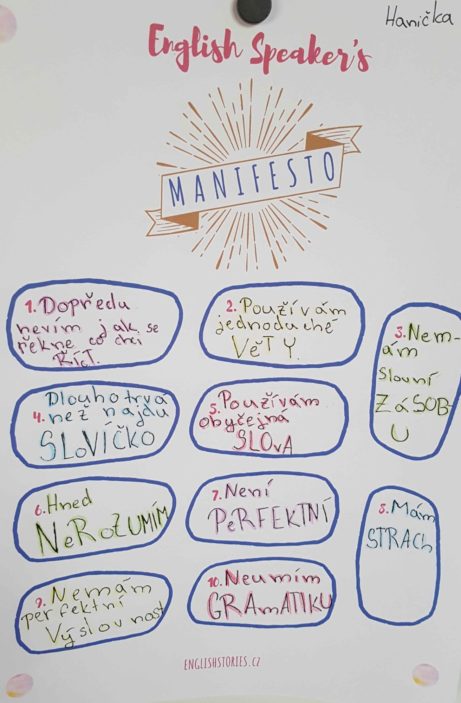 Hanička
English Speaker's
MANIFESTO
1. Dopředu
nevím jak se
řekne co chci
Říct.
2. Používám
jednoduché
VěTY.
3. Nem-
ám
slovní
ZáSOB-
U
4. Dlouho trvá
než najdu
SLoVÍČKO
5. Používám
obyčejná
SLOvA
6. Hned
NeRoZUMÍM
7. Není
PeRFEKTNÍ
8. Mám
STRACh
9. Nemám
perfektní
Výslovnost
10. Neumím
GRAmATIKU
ENGLISHSTORIES.CZ